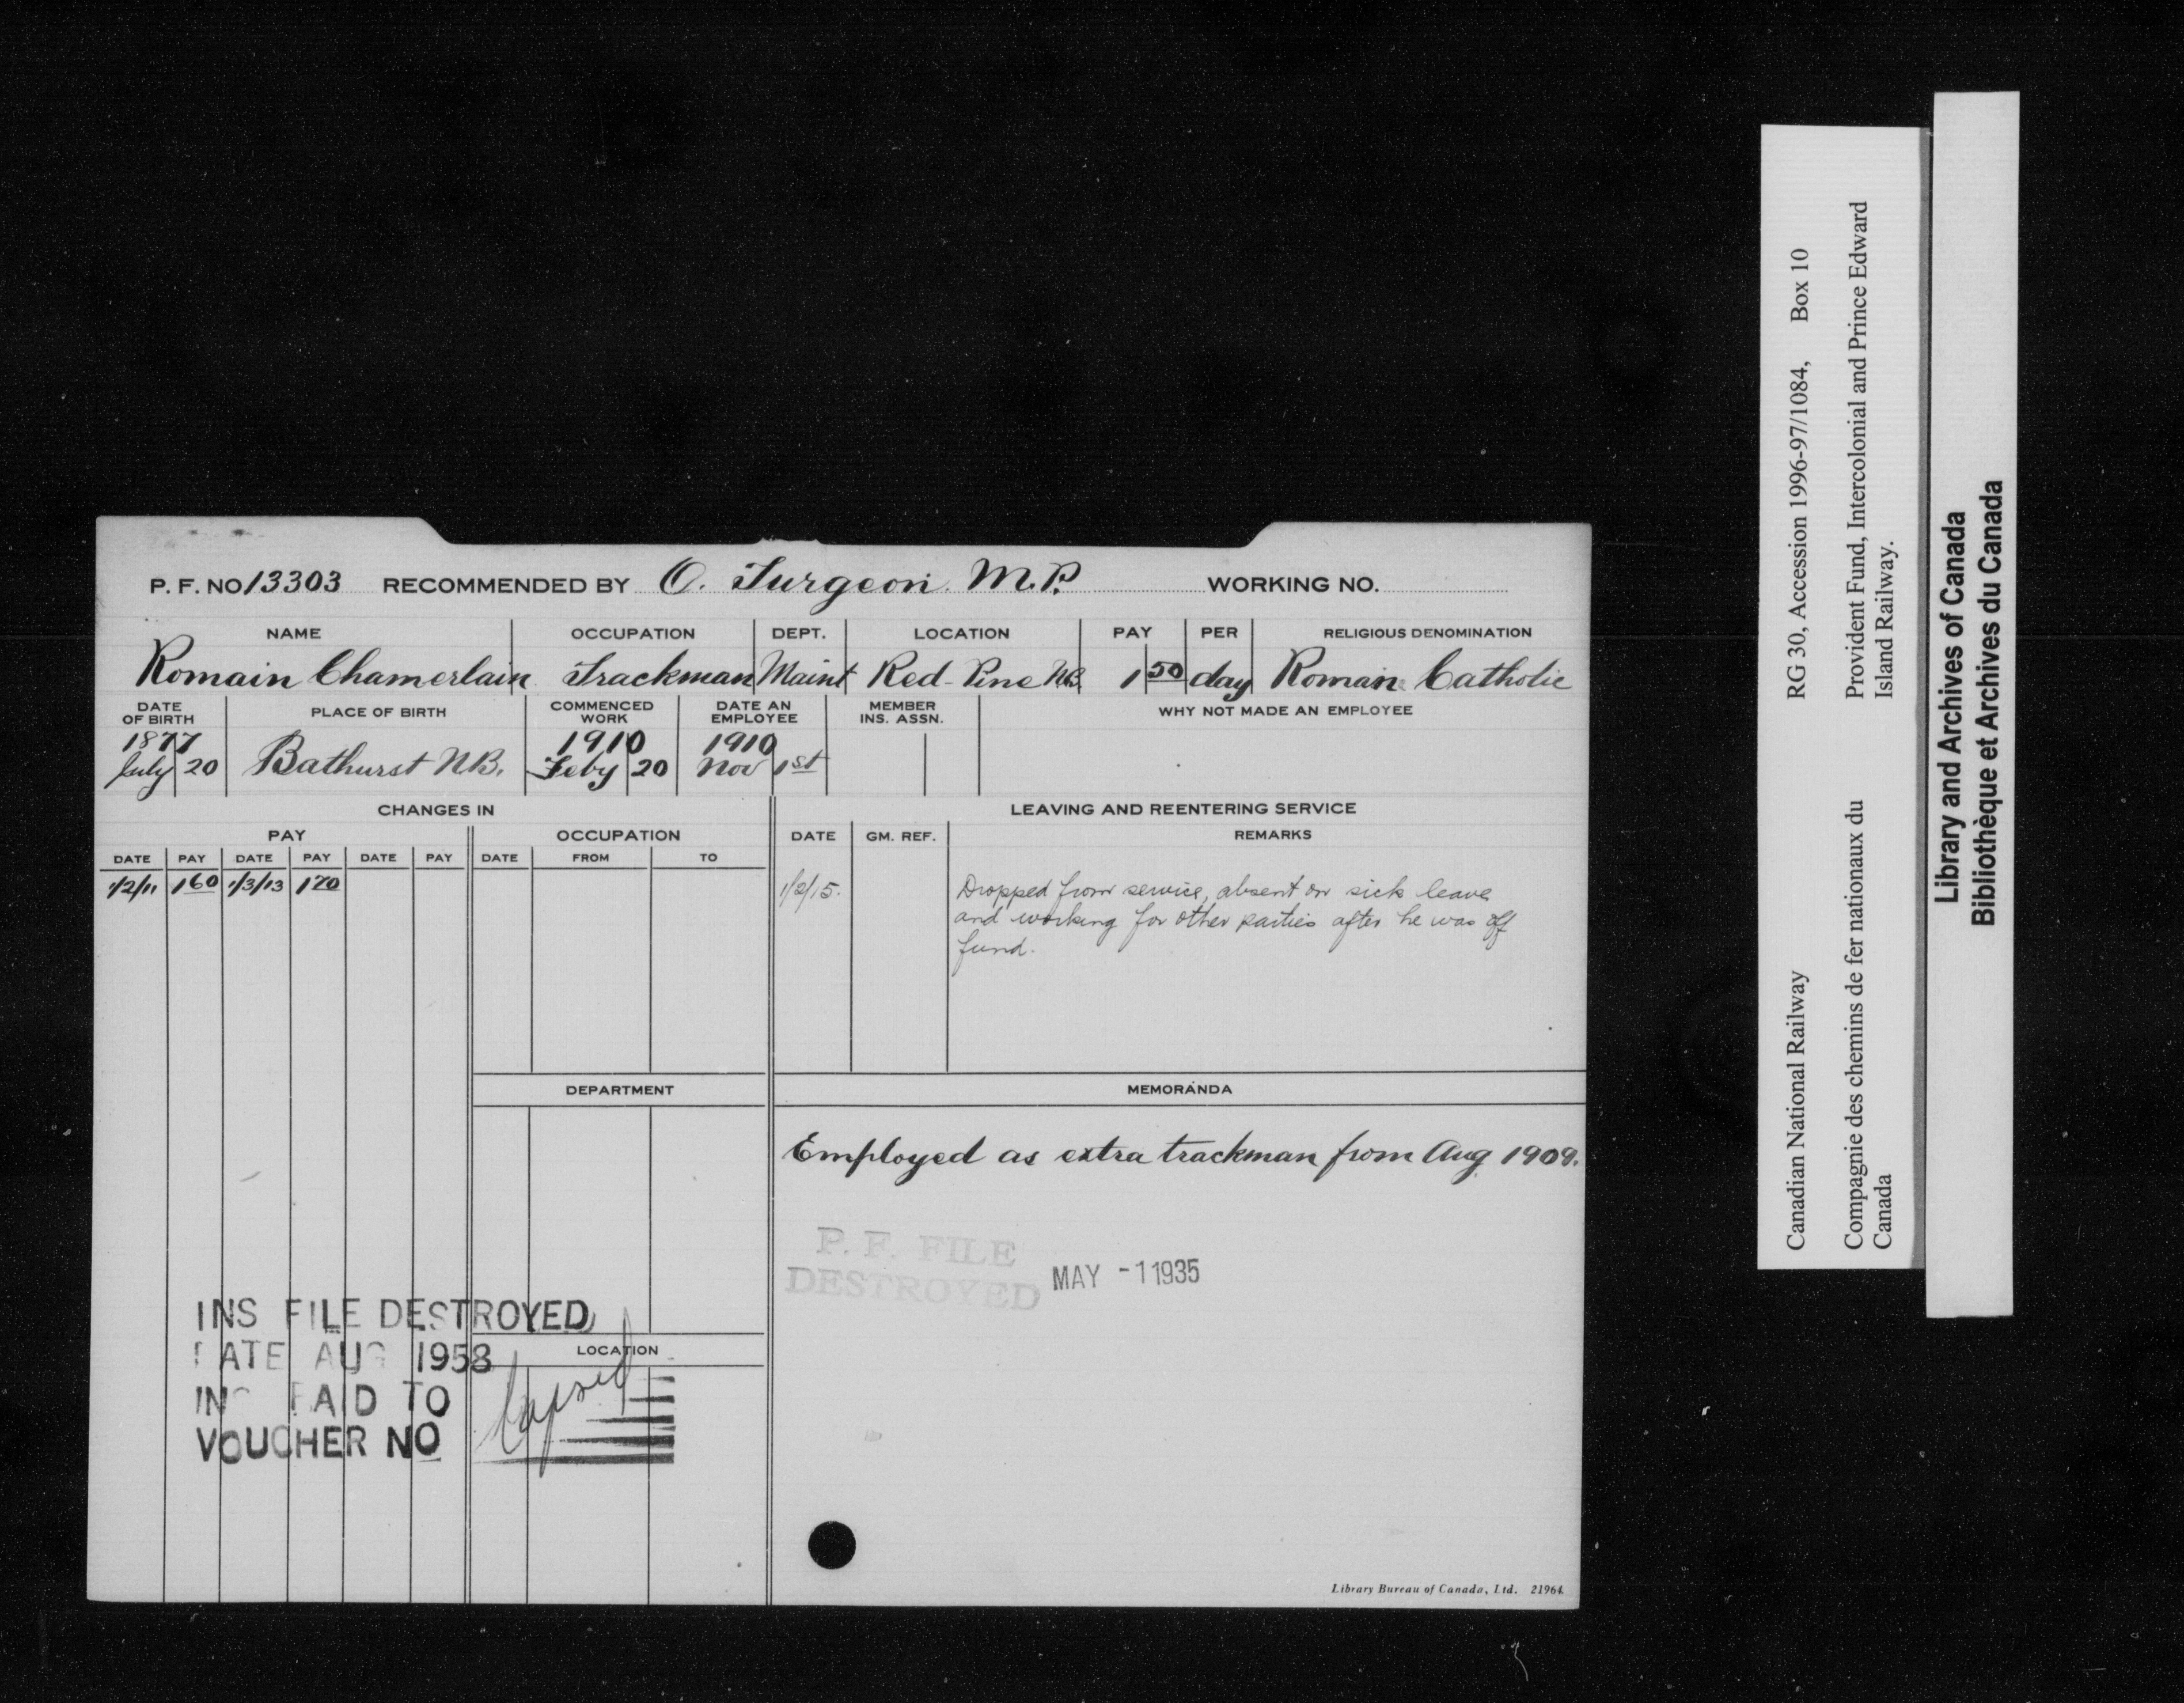 P. F. NO 13303 RECOMMENDED BY O. Turgeon. M.P. WORKING NO.
NAME OCCUPATION DEPT. LOCATION PAY PER RELIGIOUS DENOMINATION
Romain Chamerlain Trackman Maint Red Pine N.B. 1 50 day Roman Catholic
DATE OF BIRTH PLACE OF BIRTH COMMENCED WORK DATE AN EMPLOYEE MEMBER INS. ASSN. WHY NOT MADE AN EMPLOYEE
1877 1910 1910
July 20 Bathurst N.B. Feby 20 Nov 1st
CHANGES IN LEAVING AND REENTERING SERVICE
PAY OCCUPATION DATE GM. REF. REMARKS
DATE PAY DATE PAY DATE PAY DATE FROM TO
1/2/11 160 1/3/13 170 1/2/15. Dropped from service, absent on sick leave
and working for other parties after he was off
fund.
DEPARTMENT MEMORANDA
Employed as extra trackman from Aug 1909.
P. F. FILE
DESTROYED MAY -1 1935
INS FILE DESTROYED
DATE AUG 1958 LOCATION
INS PAID TO
VOUCHER NO
lapsed
Library Bureau of Canada, Ltd. 21964
Canadian National Railway RG 30, Accession 1996-97/1084, Box 10
Compagnie des chemins de fer nationaux du Provident Fund, Intercolonial and Prince Edward
Canada Island Railway.
Library and Archives of Canada
Bibliothèque et Archives du Canada